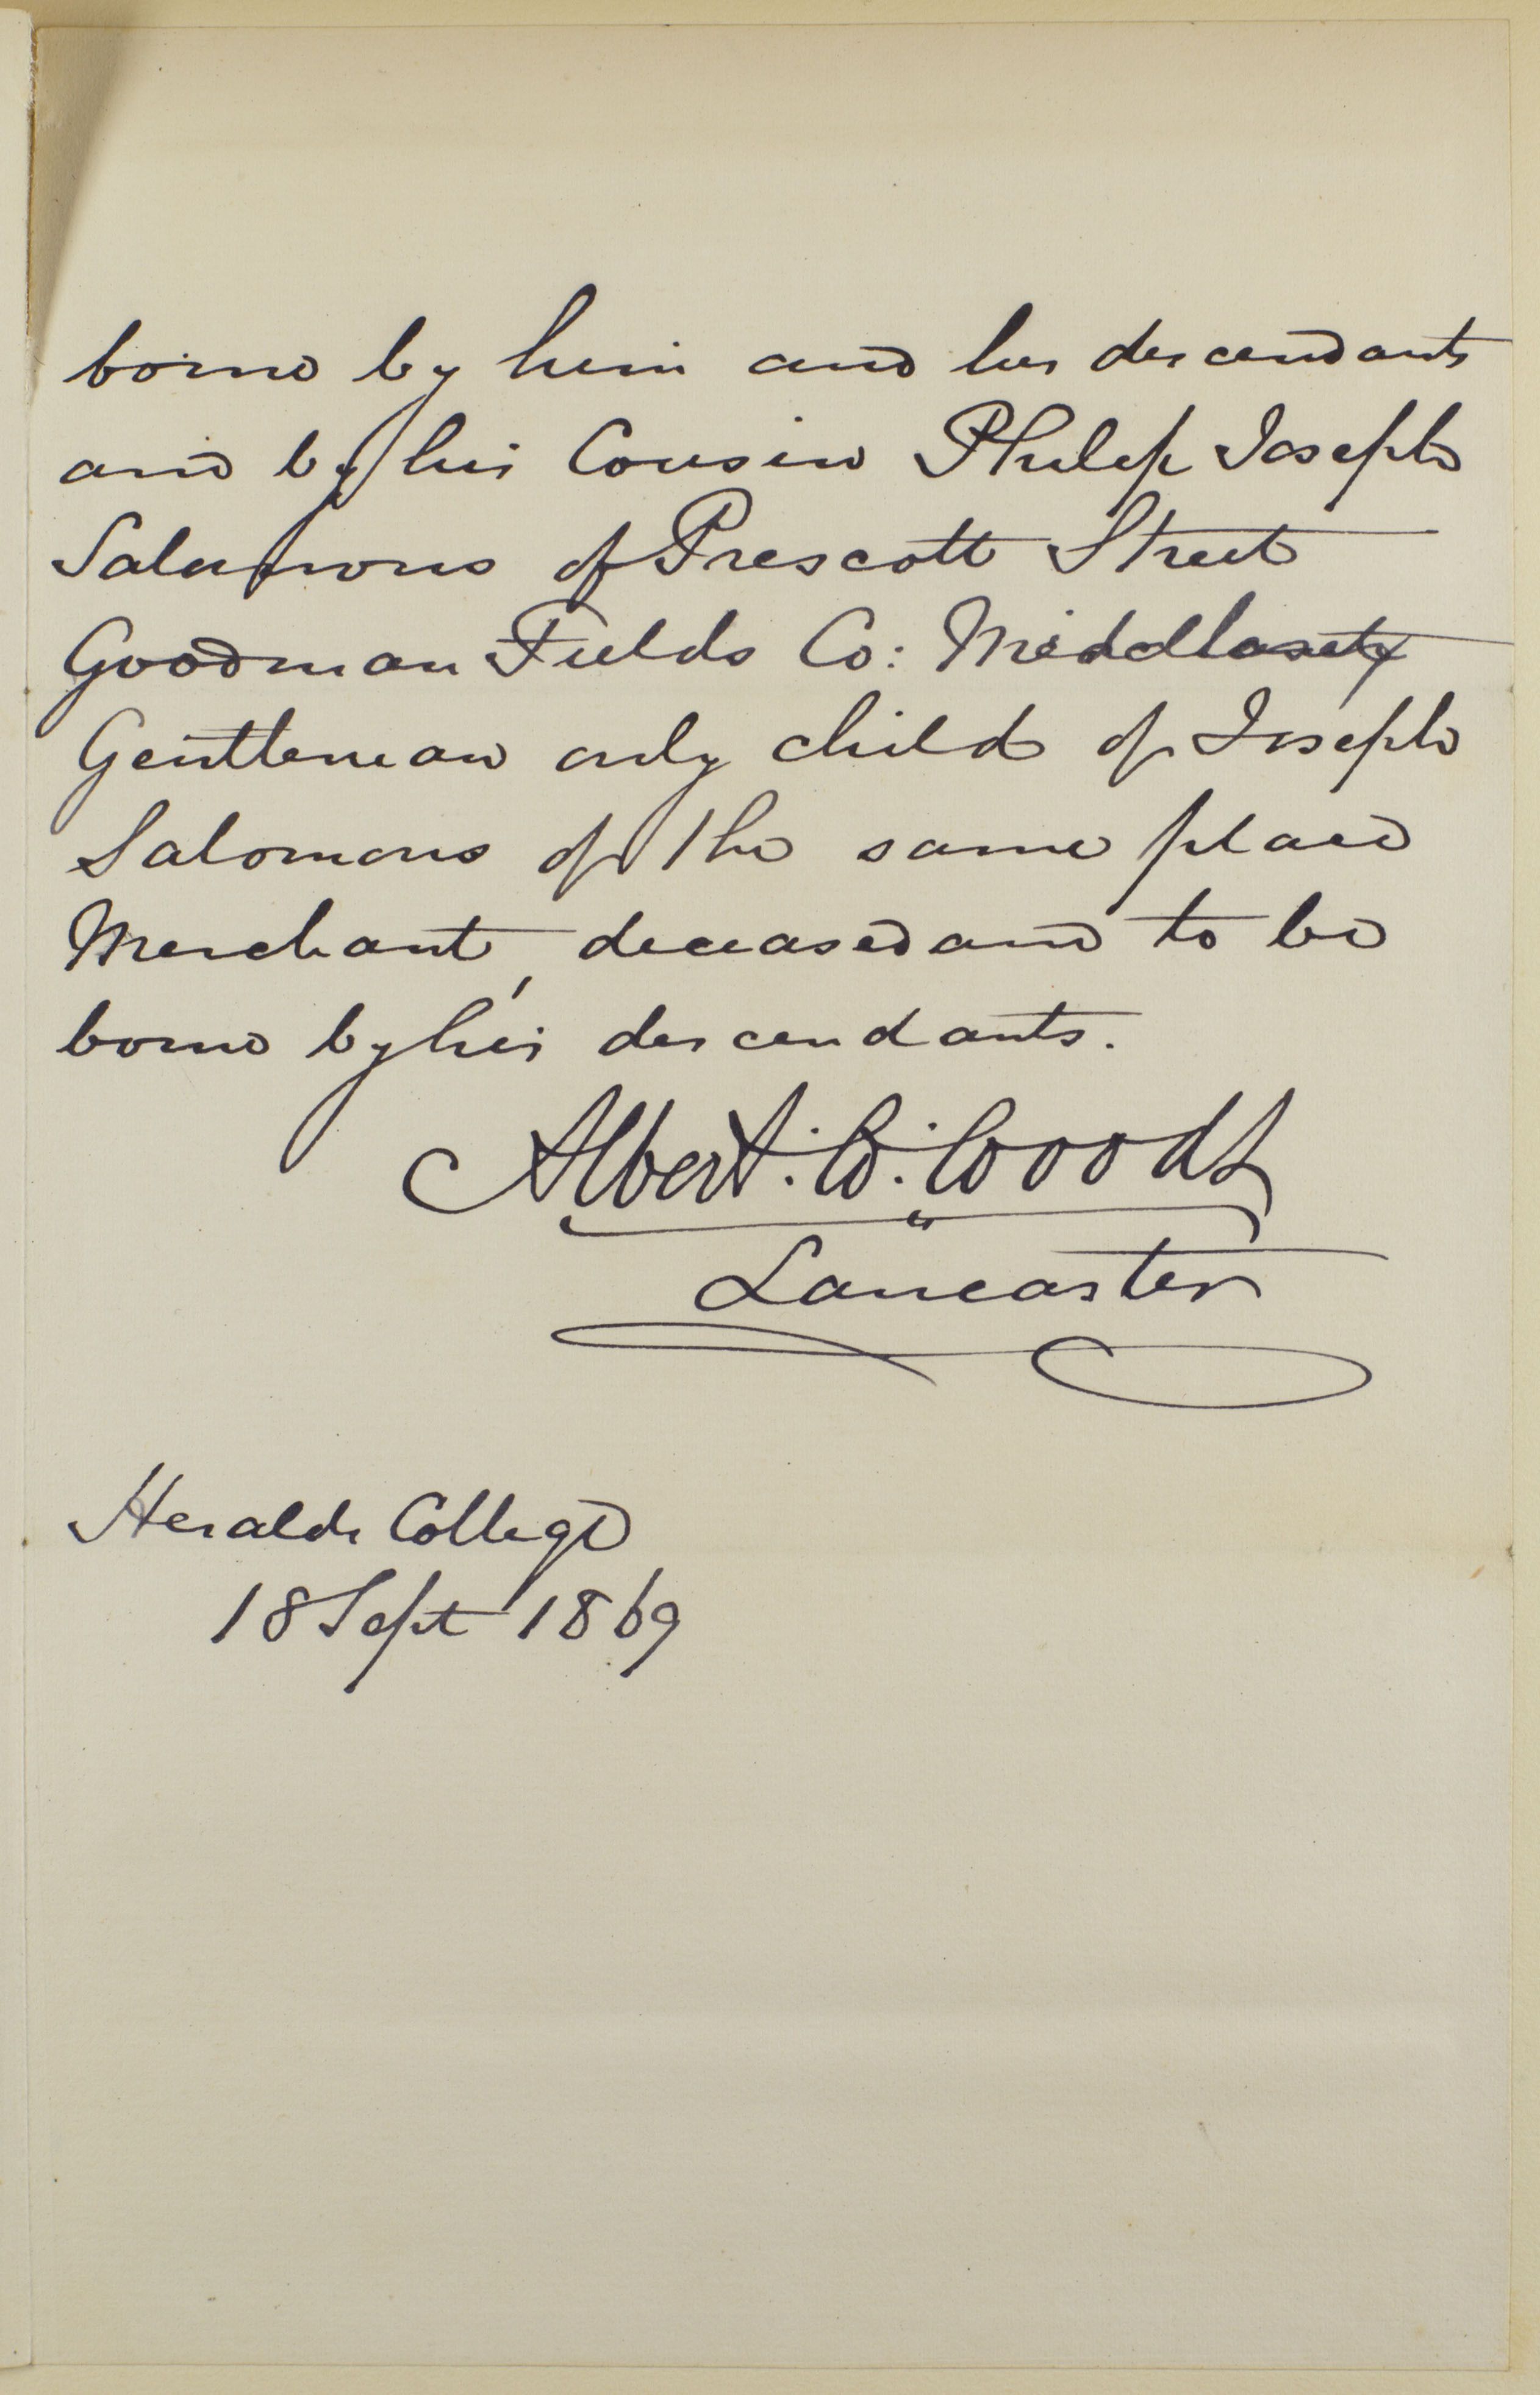 borne by him and his descendants
and by his Cousin Philip Joseph
Salomons of Prescott Street
Goodman Fields Co: Middlesex
Gentleman only child of Joseph
Salomons of the same place
Merchant, deceased and to be
borne by his descendants.
Albert. W. Woods
Lancaster
Heralds College
18 Sept 1869